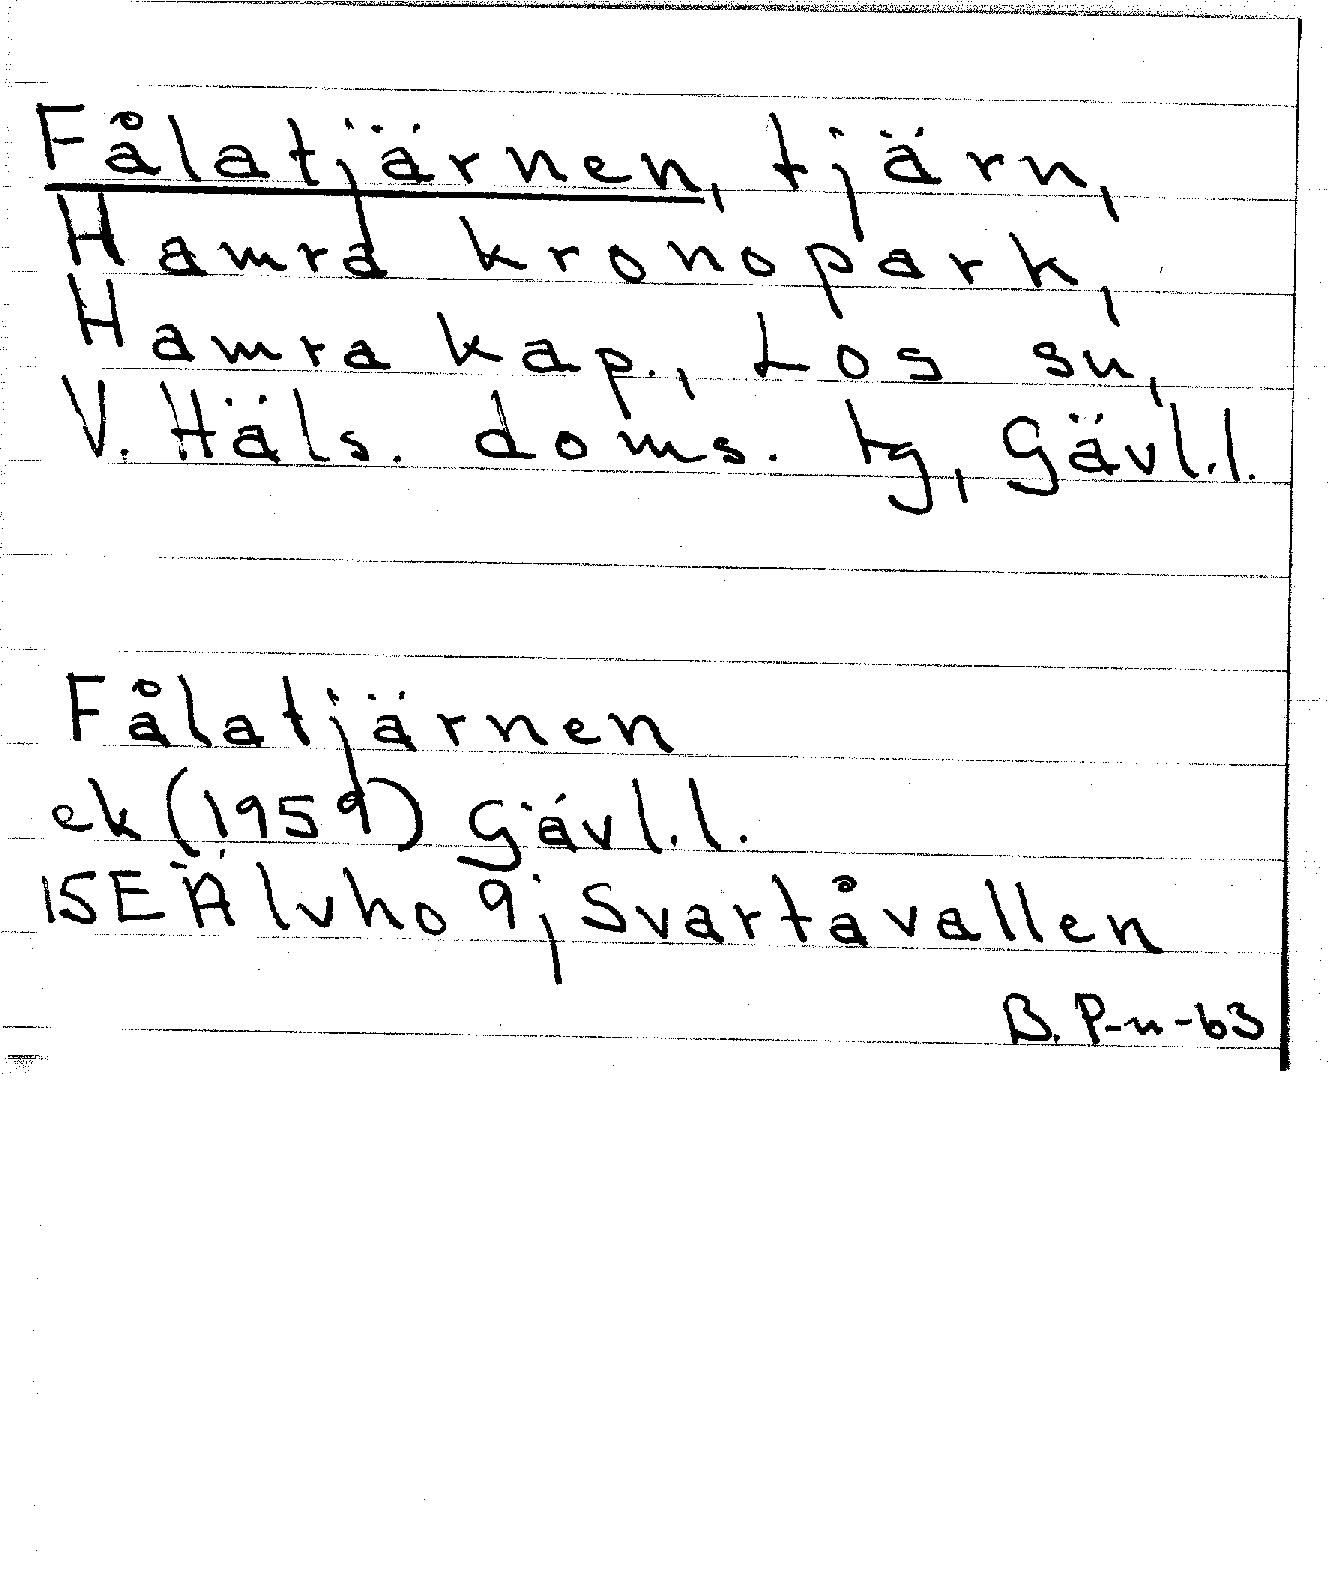 Fålatjärnen, tjärn,
Hamra kronopark,
Hamra kap., Los sn,
V. Häls. doms. tg, Gävl.l.
Fålatjärnen
ek (1959) Gävl.l.
15E Älvho 9j Svartåvallen
B. P-n-63